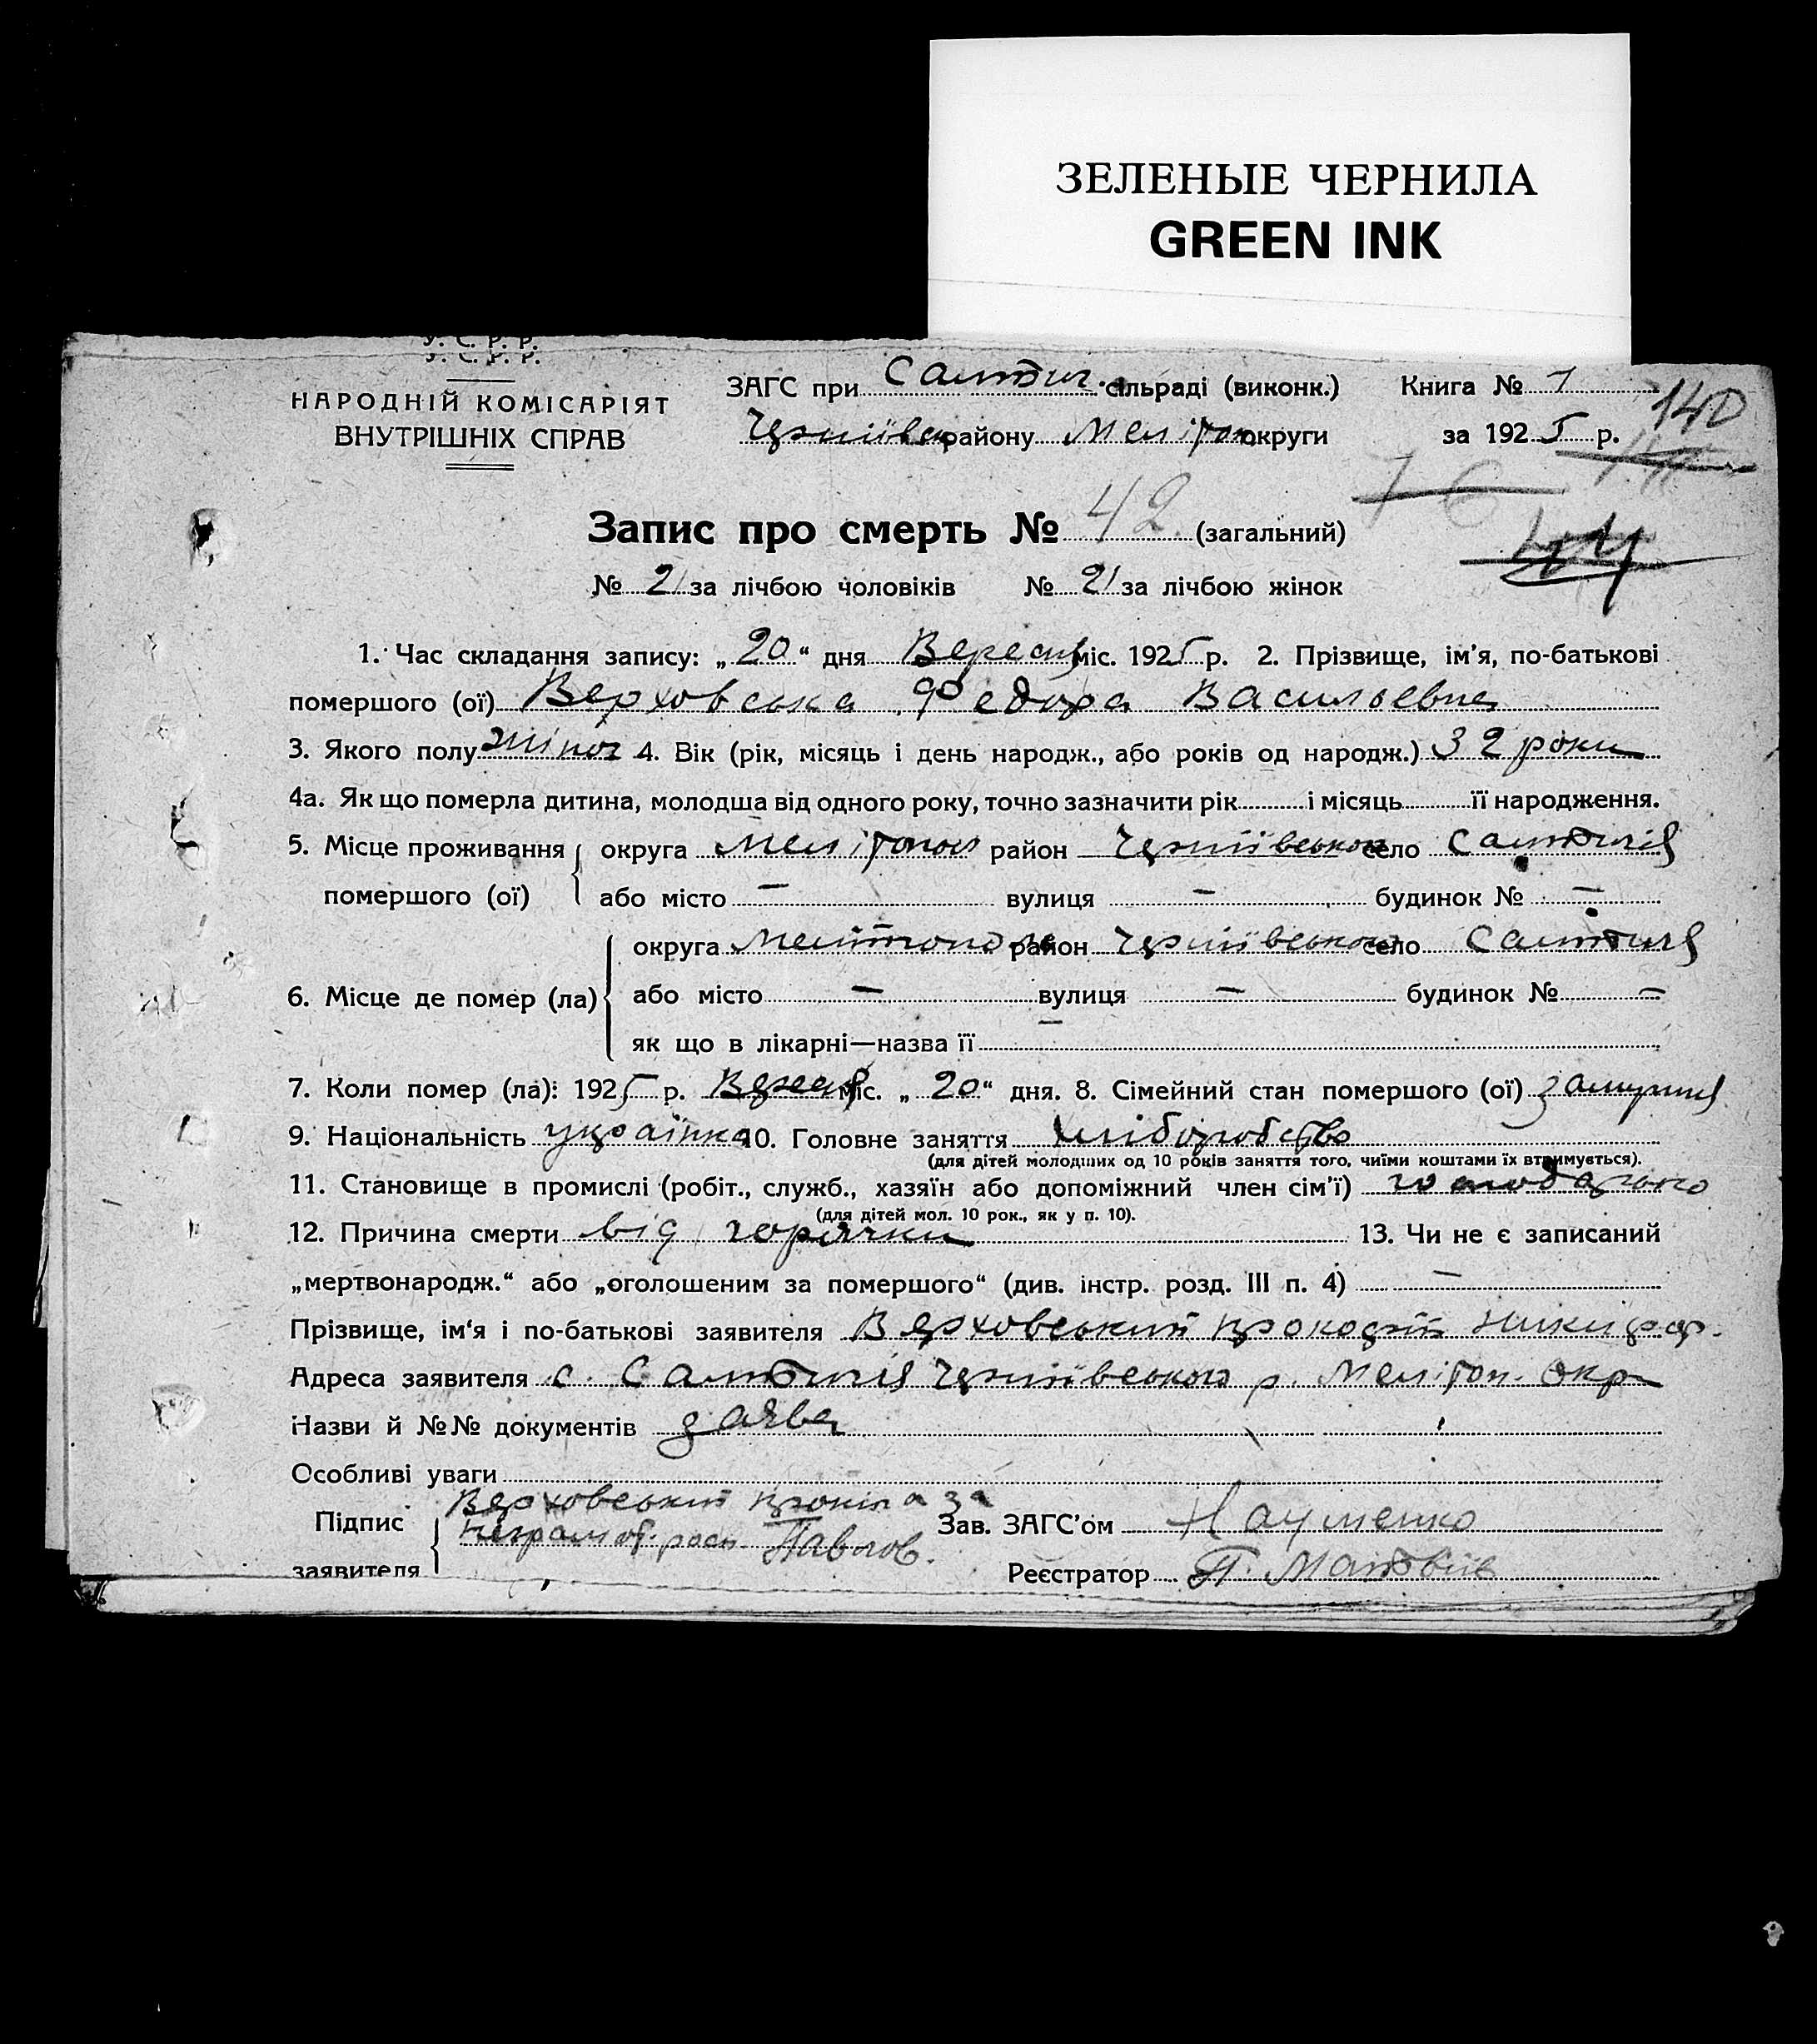 ЗЕЛЕНЫЕ ЧЕРНИЛА
GREEN INK
У. С. Р. Р.
НАРОДНІЙ КОМІСАРІЯТ
ВНУТРІШНІХ СПРАВ
ЗАГС при Салтич. сільраді (виконк.) Книга № 1
району Мелітоп округи за 1925 р.
140
Запис про смерть № 42 (загальний)
№ 21 за лічбою чоловіків № 21 за лічбою жінок
1. Час складання запису: „20“ дня Вересня міс. 1925 р. 2. Прізвище, ім'я, по-батькові
помершого (ої) Верховська Федора Васильевна
3. Якого полу жіноч 4. Вік (рік, місяць і день народж., або років од народж.) 32 роки
4а. Як що померла дитина, молодша від одного року, точно зазначити рік і місяць її народження.
5. Місце проживання округа Мелітопол район Чернігівського село Салтичія
помершого (ої) або місто — вулиця — будинок № —
округа Мелітополь район Чернігівського село Салтичія
6. Місце де помер (ла) або місто — вулиця — будинок № —
як що в лікарні—назва її —
7. Коли помер (ла): 1925 р. Вересня міс. „20“ дня. 8. Сімейний стан помершого (ої) замужня
9. Національність українка 10. Головне заняття хліборобство
(для дітей молодших од 10 років заняття того, чиїми коштами їх втримується).
11. Становище в промислі (робіт., служб., хазяїн або допоміжний член сім'ї)
(для дітей мол. 10 рок., як у п. 10).
12. Причина смерти від горячки 13. Чи не є записаний
„мертвонародж.“ або „оголошеним за помершого“ (див. інстр. розд. III п. 4) —
Прізвище, ім'я і по-батькові заявителя Верховський
Адреса заявителя с. Салтичія Чернігівського р. Мелітоп. окр
Назви й №№ документів заява
Особливі уваги
Підпис Верховський за
неграмот. росп. Павлов. Зав. ЗАГС'ом Науменко
заявителя Реєстратор П. Матвіїв